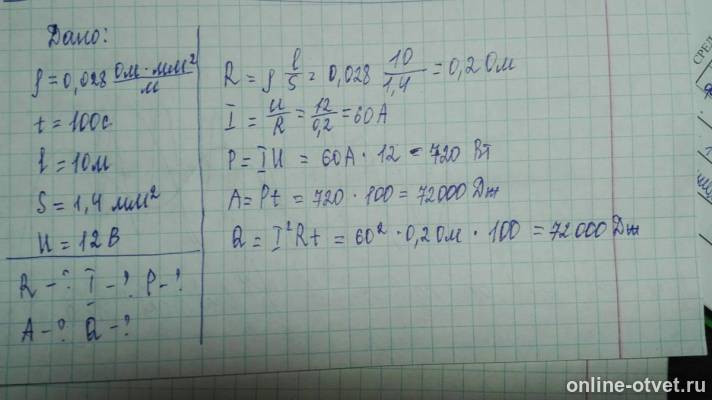 Дано:
ρ = 0,028 Ом · мм²/м
t = 100с
l = 10м
S = 1,4 мм²
U = 12 В
R - ? I - ? P - ?
A - ? Q - ?
R = ρ l/S = 0,028 10/1,4 = 0,2 Ом
I = U/R = 12/0,2 = 60 А
P = IU = 60А · 12 = 720 Вт
A = Pt = 720 · 100 = 72000 Дж
Q = I²Rt = 60² · 0,2 Ом · 100 = 72000 Дж
online-otvet.ru